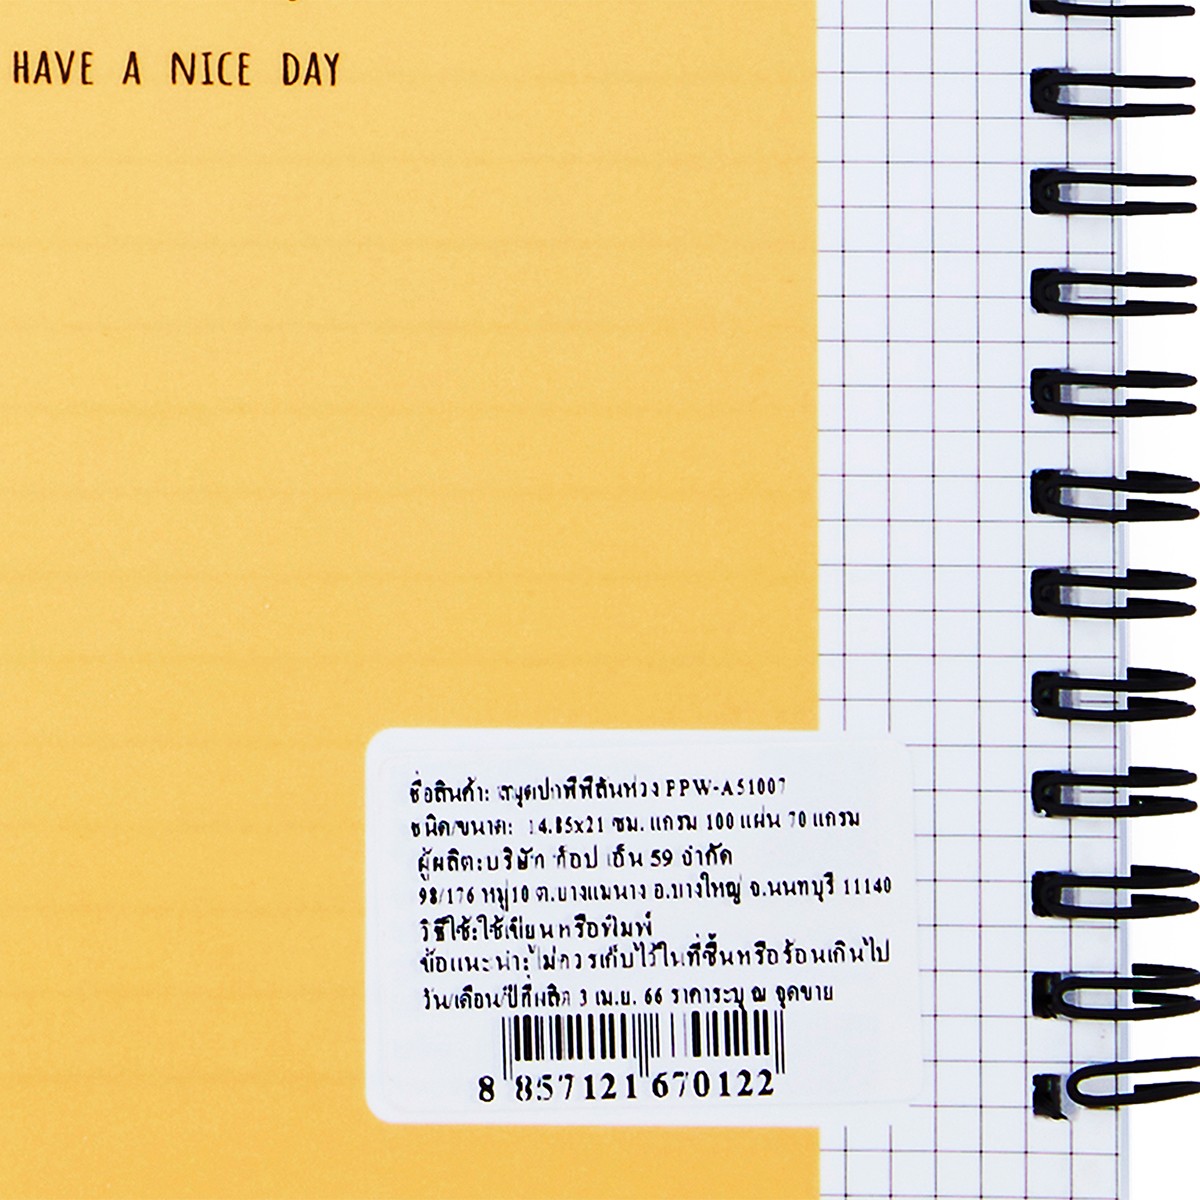 HAVE A NICE DAY
ชื่อสินค้า: สมุดปกพีพีสันห่วง PPW-A51007
ชนิด/ขนาด: 14.85x21 ซม. แกรม 100 แผ่น 70 แกรม
ผู้ผลิต:บริษัท ก็อป เอ็น 59 จำกัด
98/176 หมู่10 ต.บางแมนาง อ.บางใหญ่ จ.นนทบุรี 11140
วิธีใช้:ใช้เขียนหรือพิมพ์
ข้อแนะนำ:ไม่ควรเก็บไว้ในที่ชื้นหรือร้อนเกินไป
วัน/เดือน/ปีที่ผลิต 3 เม.ย. 66 ราคาระบุ ณ จุดขาย
8 857121 670122